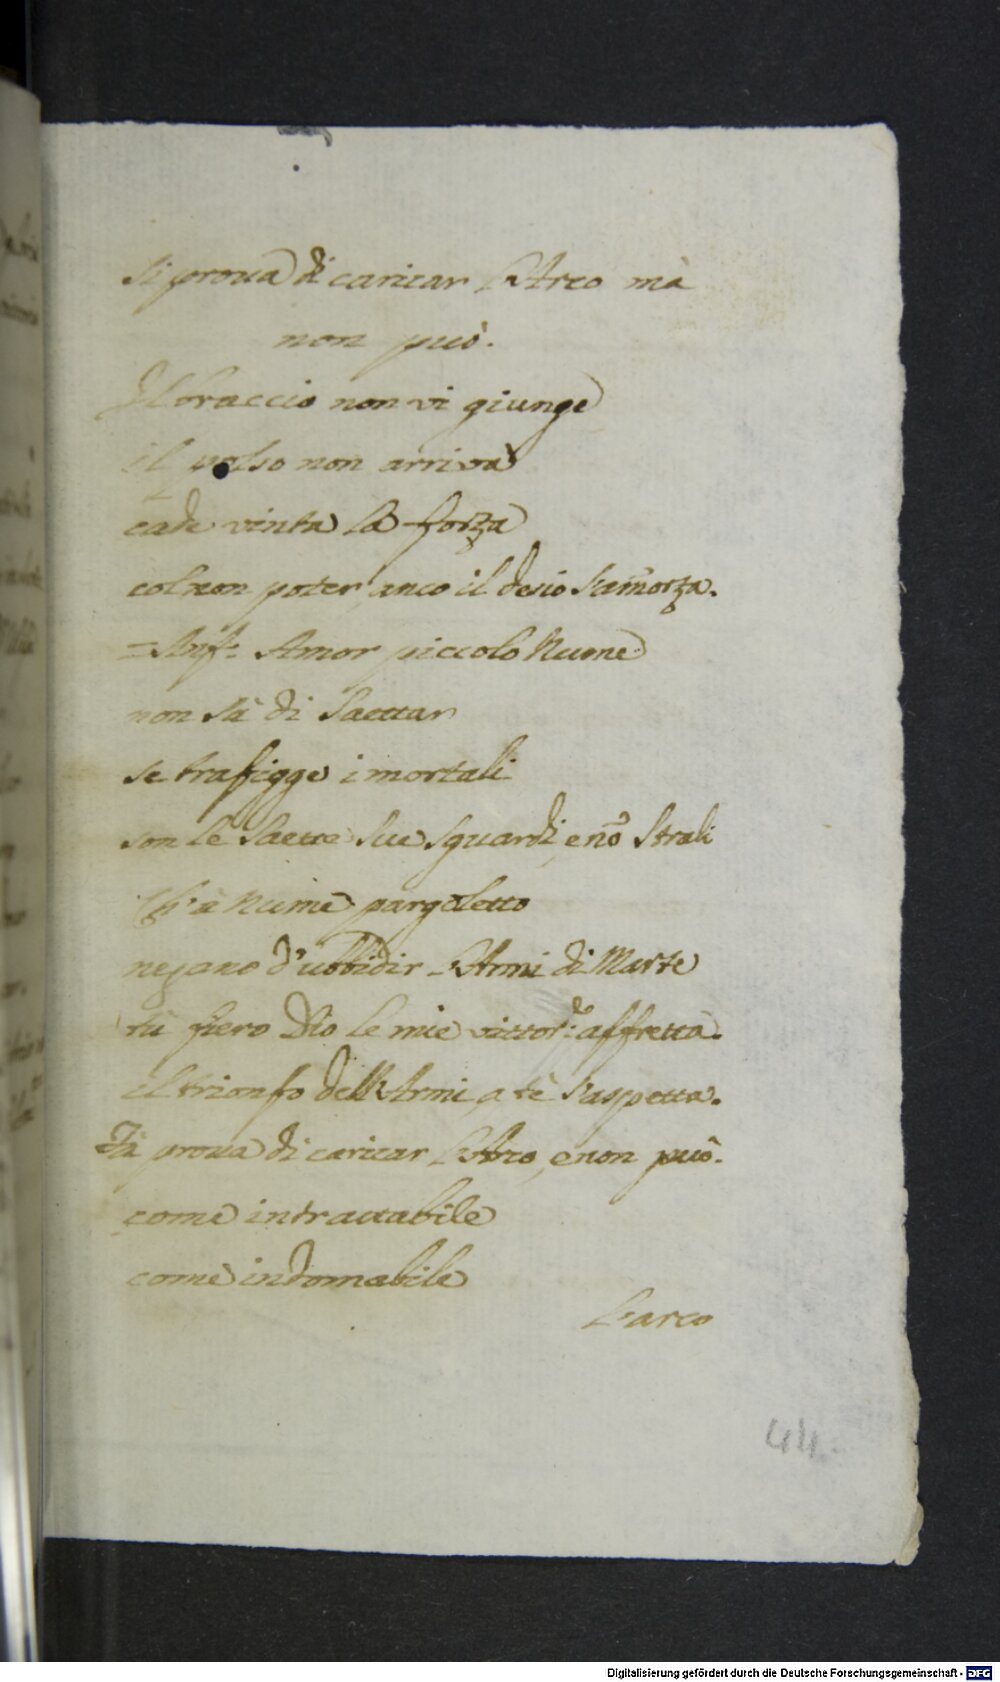 Si proua di caricar l'Arco mà
non può.
Il braccio non vi giunge
il polso non arriva
cade vinta la forza
col non poter, anco il desio s'amorza.
= Anf: Amor piccolo Nume
non sà di Saettar
se trafigge i mortali
son le Saette Sue sguardi, e nõ Strali
Ch'à Nume pargoletto
negano d'ubbidir l'Armi di Marte
tù fiero Dio le mie vittor:e affretta.
il trionfo dell'Armi a tè s'aspetta.
Fà proua di caricar l'Arco, e non può.
come intrattabile
come indomabile
L'arco
44.
Digitalisierung gefördert durch die Deutsche Forschungsgemeinschaft - DFG